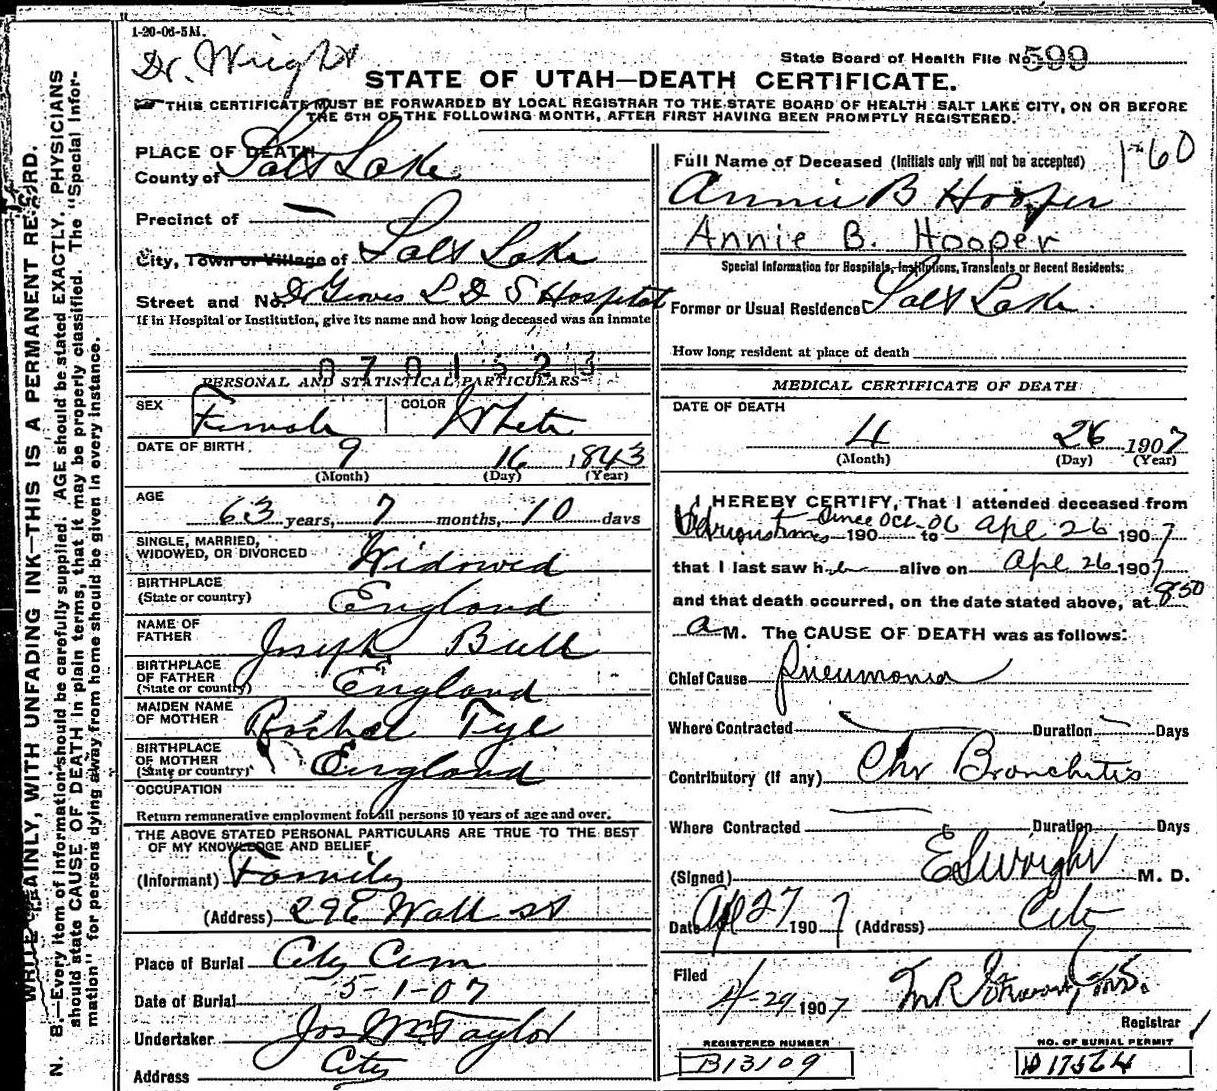 1-20-06-5M.
Dr. Wright
State Board of Health File No. 599
STATE OF UTAH—DEATH CERTIFICATE.
THIS CERTIFICATE MUST BE FORWARDED BY LOCAL REGISTRAR TO THE STATE BOARD OF HEALTH SALT LAKE CITY, ON OR BEFORE
THE 5TH OF THE FOLLOWING MONTH, AFTER FIRST HAVING BEEN PROMPTLY REGISTERED.
WRITE PLAINLY, WITH UNFADING INK—THIS IS A PERMANENT RECORD.
N. B.—Every item of information should be carefully supplied. AGE should be stated EXACTLY. PHYSICIANS
should state CAUSE OF DEATH in plain terms, that it may be properly classified. The "Special Infor-
mation" for persons dying away from home should be given in every instance.
PLACE OF DEATH
County of Salt Lake
Precinct of —
City, Town or Village of Salt Lake
Street and No. Dr Groves L D S Hospital
If in Hospital or Institution, give its name and how long deceased was an inmate
0701523
PERSONAL AND STATISTICAL PARTICULARS
SEX Female COLOR White
DATE OF BIRTH 9 16 1843
(Month) (Day) (Year)
AGE
63 years, 7 months, 10 days
SINGLE, MARRIED,
WIDOWED, OR DIVORCED Widowed
BIRTHPLACE
(State or country) England
NAME OF
FATHER Joseph Bull
BIRTHPLACE
OF FATHER
(State or country) England
MAIDEN NAME
OF MOTHER Rachel Tye
BIRTHPLACE
OF MOTHER
(State or country) England
OCCUPATION
Return remunerative employment for all persons 10 years of age and over.
THE ABOVE STATED PERSONAL PARTICULARS ARE TRUE TO THE BEST
OF MY KNOWLEDGE AND BELIEF
(Informant) Family
(Address) 296 Wall st
Place of Burial City Cem
Date of Burial 5-1-07
Undertaker Jos Wm Taylor
Address City
Full Name of Deceased (Initials only will not be accepted) 1-60
Annie B Hooper
Annie B. Hooper
Special Information for Hospitals, Institutions, Transients or Recent Residents:
Former or Usual Residence Salt Lake
How long resident at place of death
MEDICAL CERTIFICATE OF DEATH
DATE OF DEATH
4 26 1907
(Month) (Day) (Year)
I HEREBY CERTIFY, That I attended deceased from
since Oct. 06
190 to Apl 26 1907
that I last saw her alive on Apl 26 1907
and that death occurred, on the date stated above, at 8 50
a M. The CAUSE OF DEATH was as follows:
Chief Cause Pneumonia
Where Contracted Duration Days
Contributory (if any) Chr Bronchitis
Where Contracted Duration Days
(Signed) E S Wright M. D.
Date Apl 27 1907 (Address) City
Filed
4-29 1907
Registrar
REGISTERED NUMBER
B13109
NO. OF BURIAL PERMIT